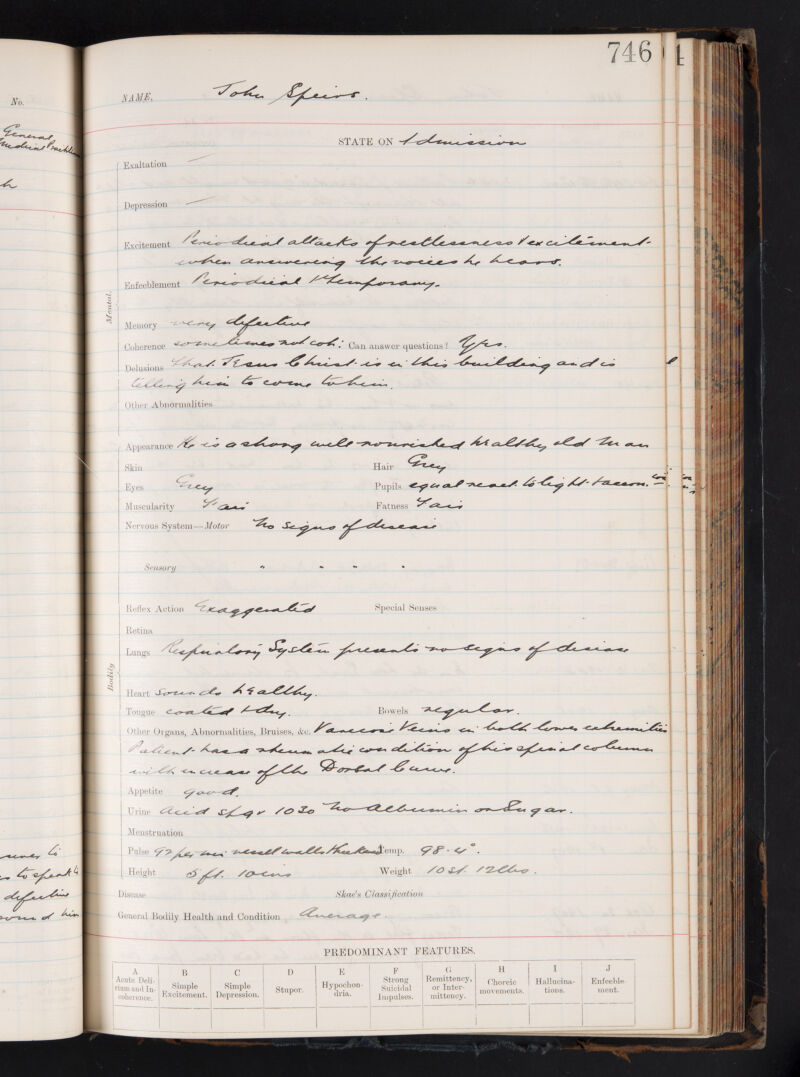 No.
General
746
NAME, John Speirs.
STATE ON Admission
Mental.
Exaltation —
Depression —
Excitement Periodical attacks of restlessness & excitement
when answering the voices he hears.
Enfeeblement Periodical & temporary.
Memory very defective
Coherence sometimes not coh: Can answer questions? Yes.
Delusions that Jesus Christ is in this building and is
telling him to come to him.
Other Abnormalities
Bodily
Appearance He is a strong well nourished healthy old man
Skin Hair Grey
Eyes Grey Pupils equal react to light & accom.
Muscularity Fair Fatness Fair
Nervous System—Motor No signs of disease
Sensory " " " "
Reflex Action Exaggerated Special Senses
Retina
Lungs Respiratory System presents no signs of disease
Heart sounds healthy.
Tongue coated & dry. Bowels regular.
Other Organs, Abnormalities, Bruises, &c. Varicose Veins in both lower extremities
Patient has a rheumatic condition of his spinal column
with increase of the Dorsal Curve.
Appetite good.
Urine Acid sp gr 1030 No Albumin or Sugar.
Menstruation
Pulse 92 per min vessel walls thickened Temp. 98.4°.
Height 5 ft. 10 ins Weight 10 st. 12 lbs.
Disease Skae's Classification
General Bodily Health and Condition Average.
PREDOMINANT FEATURES.
A B C D E F G H I J
Acute Delirium and Incoherence. Simple Excitement. Simple Depression. Stupor. Hypochondria. Strong Suicidal Impulses. Remittency, or Intermittency. Choreic movements. Hallucinations. Enfeeblement.
to
to speak to
defective
him